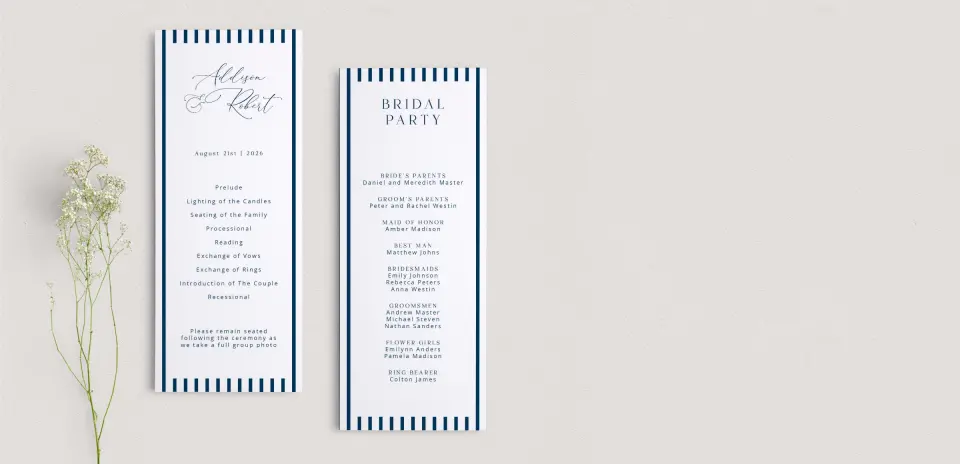 Addison
& Robert
August 21st | 2026
Prelude
Lighting of the Candles
Seating of the Family
Processional
Reading
Exchange of Vows
Exchange of Rings
Introduction of The Couple
Recessional
Please remain seated
following the ceremony as
we take a full group photo
BRIDAL
PARTY
BRIDE'S PARENTS
Daniel and Meredith Master
GROOM'S PARENTS
Peter and Rachel Westin
MAID OF HONOR
Amber Madison
BEST MAN
Matthew Johns
BRIDESMAIDS
Emily Johnson
Rebecca Peters
Anna Westin
GROOMSMEN
Andrew Master
Michael Steven
Nathan Sanders
FLOWER GIRLS
Emilynn Anders
Pamela Madison
RING BEARER
Colton James